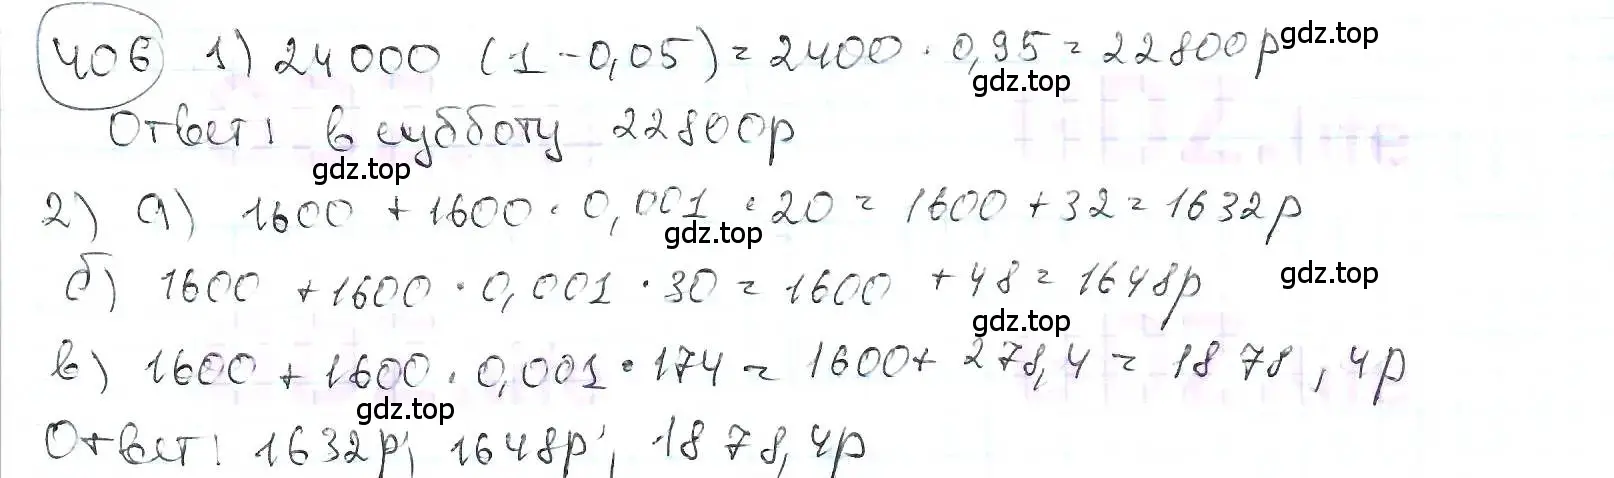 406 1) 24 000 (1 - 0,05) = 2400 · 0,95 = 22800р gdz.top
gdz.top
Ответ: в субботу 22800р
gdz.top
2) а) 1600 + 1600 · 0,001 · 20 = 1600 + 32 = 1632р
gdz.top
б) 1600 + 1600 · 0,001 · 30 = 1600 + 48 = 1648р gdz.top
gdz.top
в) 1600 + 1600 · 0,001 · 174 = 1600 + 278,4 = 1878,4р
gdz.top
Ответ: 1632р; 1648р; 1878,4р